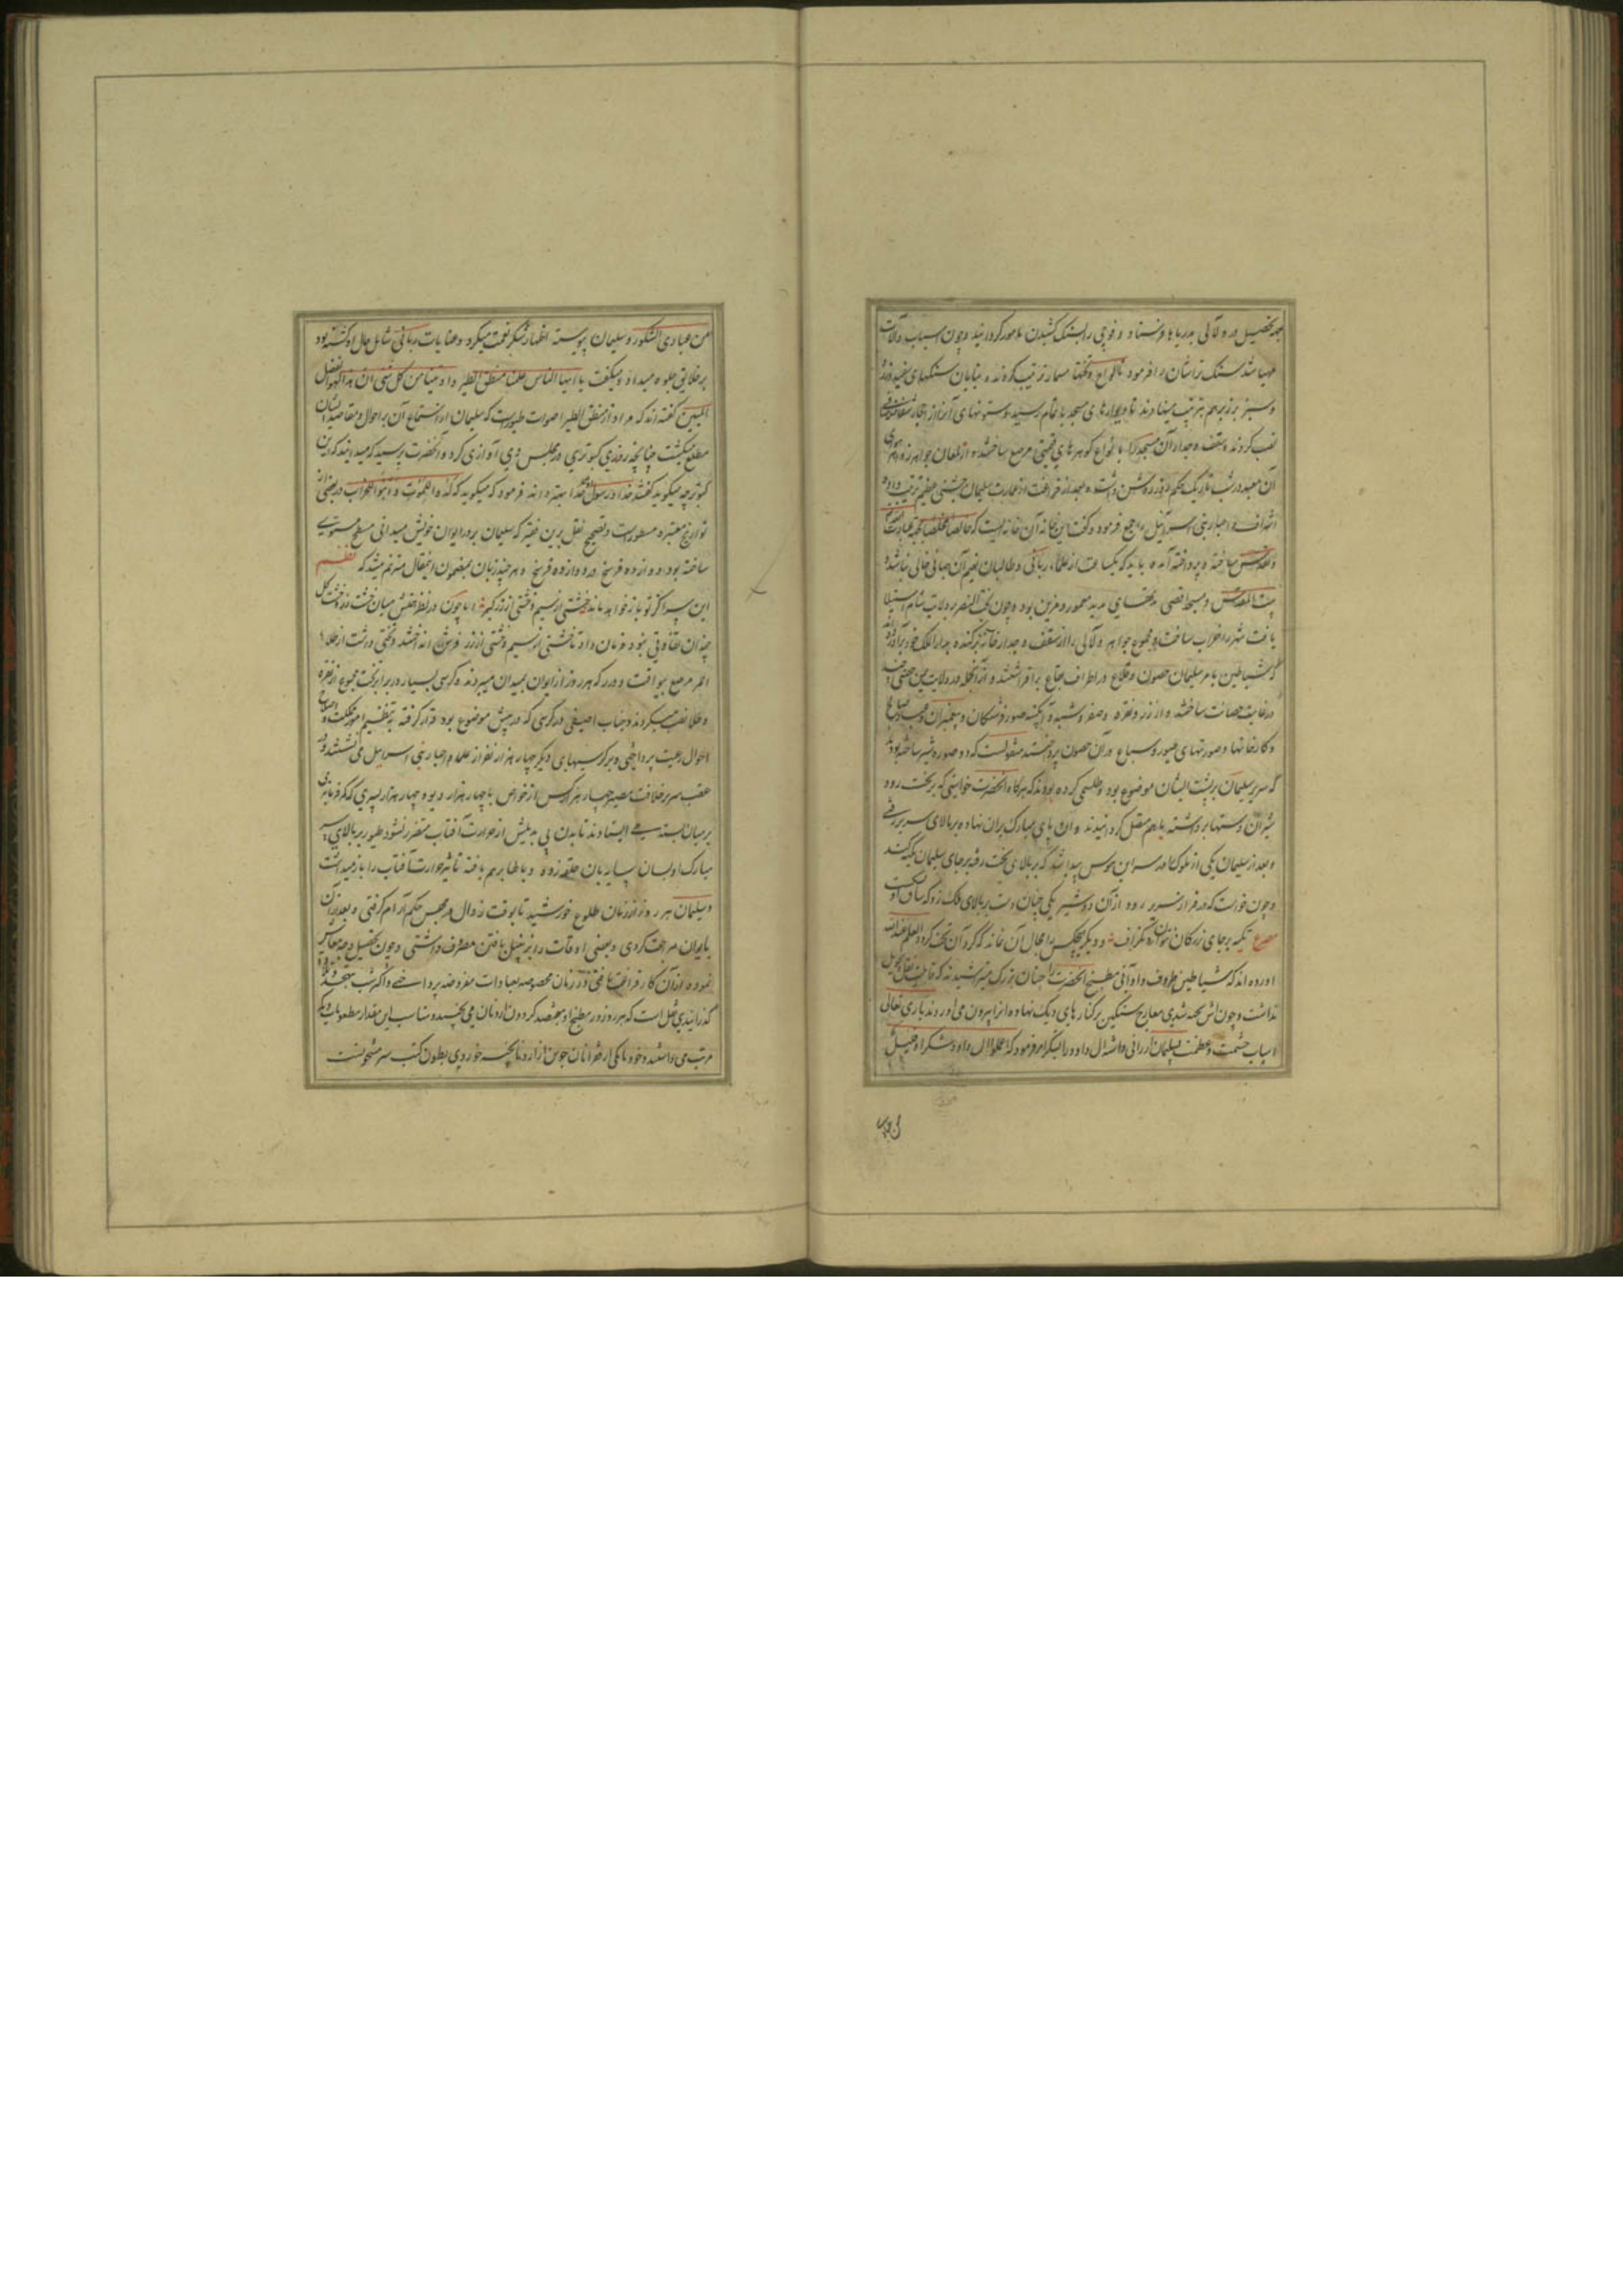 بجهة تحصیل در و لآلی بدریاها فرستاد و فوجی را بسنک کشیدن مامور کردانید و چون اسباب و آلات
مهیا شد سنک تراشان را فرمود تا الواح و تختها مسمار ترتیب کردند و بنایان سنکهای سفید و زرد
و سبز بر زبر هم بترتیب مینهادند تا دیوارهای مسجد باتمام رسید و ستونهای آنرا از احجار شفاف
نصب کردند و سقف و جدار آن مسجد را بانواع کوهرهای قیمتی مرصع ساختند و از لمعان جواهر زواهر
آن معبد در شب تاریک حکم روز روشن داشت و بعد از فراغت از عمارت سلیمان جشنی عظیم ترتیب داده
اشراف و احبار بنی اسرائیل را جمع فرمود و کفت این خانه آن خانه ایست که خالصا مخلصا بجهة عبادت
و تقدس ساخته و پرداخته آمده باید که یکساعت از علماء ربانی و طالبان نعیم آن جهانی خالی نباشد و
بیت المقدس و مسجد اقصی مدتهای مدید معمور و مزین بود و چون بخت النصر بر ولایت شام استیلا
یافت شهر را خراب ساخت و مجموع جواهر و لآلی را از سقف و جدار خانه برکنده بدار الملک خود برد آورده اند
که شیاطین بامر سلیمان حصون و قلاع در اطراف بقاع برافراشتند و از آنجمله در ولایت یمن حصنی چند
در غایت حصانت ساختند و از زر و نقره و صفر و شبه و آبکینه صور فرشتکان و پیغمبران و
و کارخانها و صورتهای طیور و سباع در آن حصون پرداختند منقولست که دو صوره شیر ساخته بودند
که سریر سلیمان بر پشت ایشان موضوع بود و طلسمی کرده بودند که هرکاه آنحضرت خواستی که بر تخت رود
شیران دستها برداشته باهم متصل کردانیدند و آن پای مبارک بران نهاده بر بالای سریر رفتی
و بعد از سلیمان یکی از ملوک را در سر این هوس پیدا شد که بر بالای تخت رفته بر جای سلیمان تکیه کند
و چون خواست که بر فراز سریر رود از آن دو شیر یکی چنان دست بر بالای فلک زد که ساق او شکست
مصرع تکیه بر جای بزرکان نتوان زد بکزاف و دیکر هیچکس را مجال آن نماند که کرد آن تخت کردد العلم عند الله
آورده اند که شیاطین ظروف و اوانی مطبخ آنحضرت را چنان بزرک میتراشیدند که قابلیت نقل و تحویل
نداشت و چون آش پخته شدی معارج سنکین برکنارهای دیک نهاده از آنجا بیرون می آوردند باری تعالی
اسباب حشمت و عظمت سلیمان ارزانی داشته آل داود را بشکر امر فرمود که اعملوا آل داود شکرا و قلیل
من عبادی
من عبادی الشکور و سلیمان پیوسته اظهار شکر نعمت میکرد و عنایات ربانی شامل حال او کشته بود
بر خلایق جلوه میداد و میکفت یا ایها الناس علمنا منطق الطیر و اوتینا من کل شی ان هذا لهو الفضل
المبین کفته اند که مراد از منطق الطیر اصوات طیورست که سلیمان از استماع آن بر احوال و مقاصد ایشان
مطلع میکشت چنانچه روزی کبوتری در مجلس وی آوازی کرد و آنحضرت پرسید که میدانید که این
کبوتر چه میکوید کفتند خدا و رسول خدا بهتر دانند فرمود که میکوید که لدوا للموت و ابنوا للخراب در بعضی از
تواریخ معتبره مسطورست و تصحیح نقل برین فقیر که سلیمان بر در ایوان خویش میدانی مسطح مستوی
ساخته بود دوازده فرسخ در دوازده فرسخ و هرچند زبان بمضمون این مقال مترنم میشد که نظم
این سرا کر تو باز خواهد ماند خشتی از سیم و خشتی از زر کیر اما چون در نظر همتش میان خشت زر و خشت کل
چندان تفاوتی نبود فرمان داد تا خشتی از سیم و خشتی از زر فرش انداختند و تختی داشت از طلا
احمر مرصع بیواقیت و درر که هر روز از ایوان بمیدان میبردند و کرسی بسیار در برابر تخت مجموع از نقره
و طلا نصب میکردند و جناب آصفی در کرسی که در پیش موضوع بود قرار کرفته بتنظیم امور مملکت و اصلاح
احوال رعیت پرداختی و بر کرسیهای دیکر چهار هزار نفر از علما و احبار بنی اسرائیل می نشستند و در
عقب سریر خلافت مصیر چهار هزار کس از خواص با چهار هزار دیو و چهار هزار پری که کمر فرمانبری
بر میان بسته می ایستادند تا بدن بی بدیلش از حرارت آفتاب متضرر نشود طیور بر بالای سر
مبارک او بسان سایه بان حلقه زده و با طا برهم بافته تاثیر حرارت آفتاب را باز میداشت
و سلیمان هر روز از زمان طلوع خورشید تا بوقت زوال در مجلس حکم آرام کرفتی و بعد از آن
بایوان مراجعت کردی و بعضی اوقات را بزنبیل بافتن مصروف داشتی و چون تحصیل وجه معاش
نموده از آن کار فراغت یافتی در زمان مخصوصه بعبادات مفروضه پرداختی و اکثر شب بتهجد
کذرانیدی نقل است که هر روز در مطبخ او هفتصد کردون آرد نان می پختند و مناسب این مقدار مطعومات دیکر
مرتب می داشتند و خود نانکی از قوانان جوین از آرد ناپخته خوردی بطون کتب سیر مشحونست